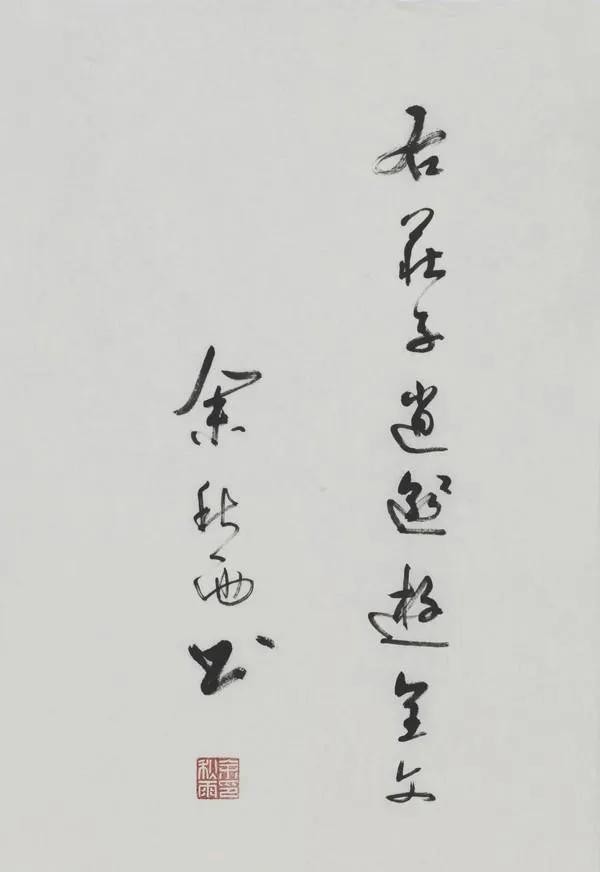 右莊子逍遙遊全文
余秋雨书
余印
秋雨